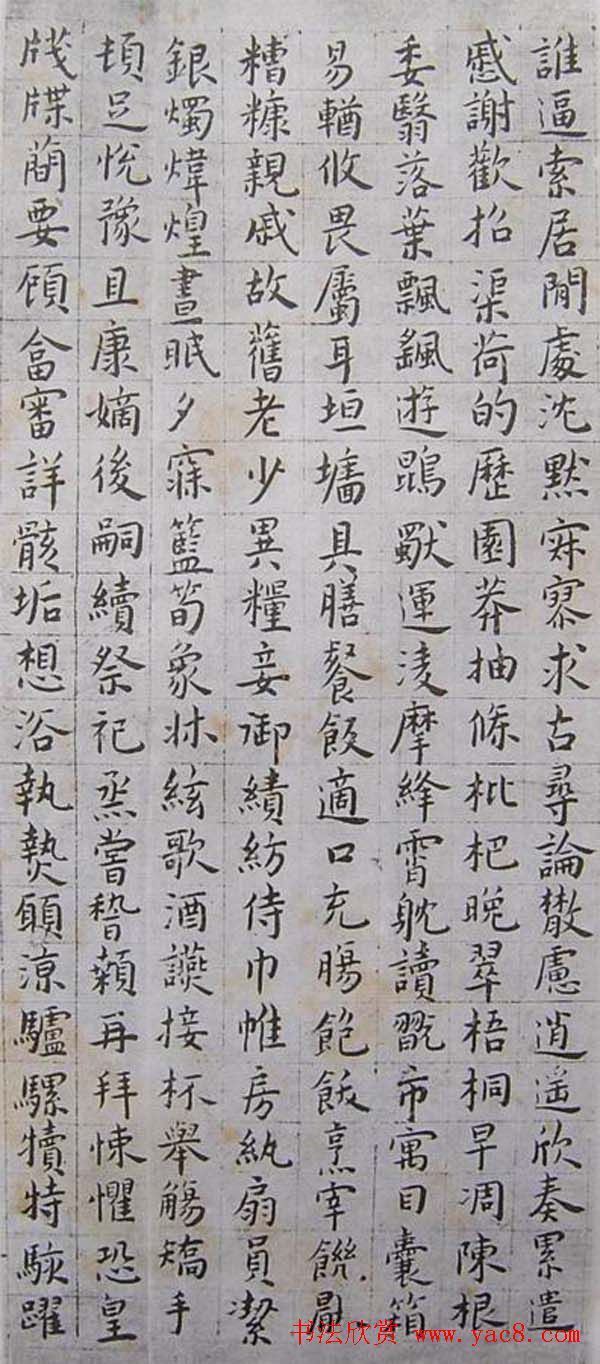 誰逼索居閒處沈默寂寥求古尋論散慮逍遥欣奏累遣
慼謝歡招渠荷的歷園莽抽條枇杷晚翠梧桐早凋陳根
委翳落葉飄颻遊鵾獸運淩摩絳霄躭讀翫市寓目囊箱
易輶攸畏屬耳垣墻具膳餐飯適口充腸飽飫烹宰饑厭
糟糠親戚故舊老少異糧妾御績紡侍巾帷房紈扇員潔
銀燭煒煌晝眠夕寐籃筍象牀絃歌酒讌接杯舉觴矯手
頓足悅豫且康嫡後嗣續祭祀烝嘗稽顙再拜悚懼恐皇
牋牒簡要顧畣審詳骸垢想浴執熱願涼驢騾犢特駭躍
书法欣赏：www.yac8.com